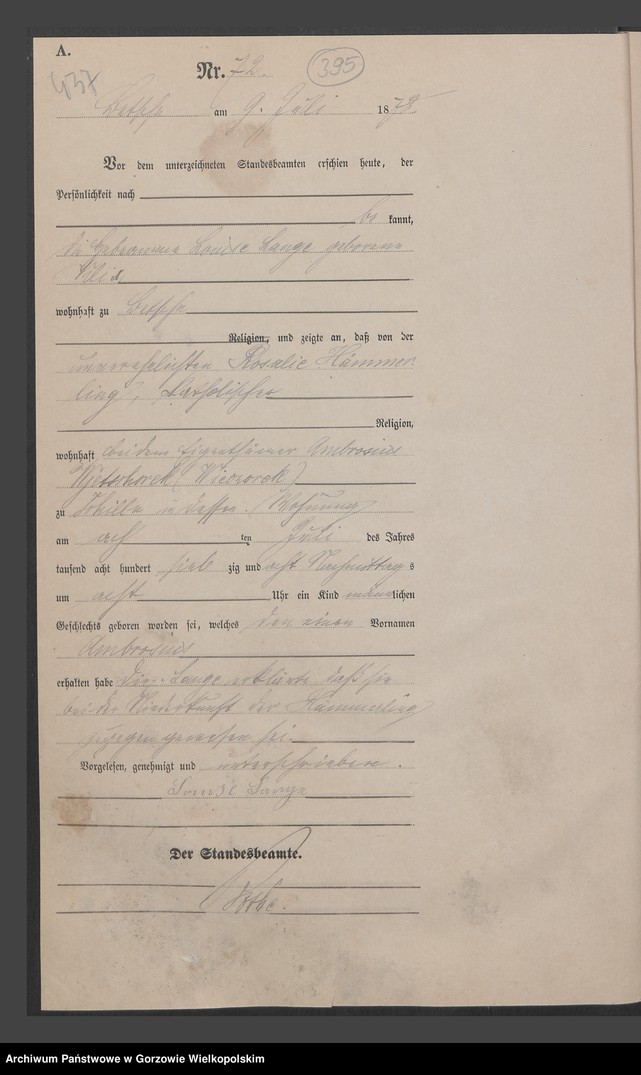 A.
437
Nr. 72.
395
Betsche am 9. Juli 1878
Vor dem unterzeichneten Standesbeamten erschien heute, der
Persönlichkeit nach
be kannt,
die Hebeamme Louise Lange geborene
wohnhaft zu Betsche
Religion, und zeigte an, daß von der
unverehelichten Rosalie Hämmer-
ling, katholischer
Religion,
wohnhaft bei dem Eigenthümer Ambrosius
Wjetschorek (Wieczorek)
zu Schilln in dessen Wohnung
am acht ten Juli des Jahres
tausend acht hundert sieb zig und acht Nachmittag s
um acht Uhr ein Kind männlichen
Geschlechts geboren worden sei, welches den einen Vornamen
Ambrosius
erhalten habe Die Lange erklärte, daß sie
bei der Niederkunft der Hämmerling
zugegen gewesen sei.
Vorgelesen, genehmigt und unterschrieben.
Louise Lange
Der Standesbeamte.
Archiwum Państwowe w Gorzowie Wielkopolskim